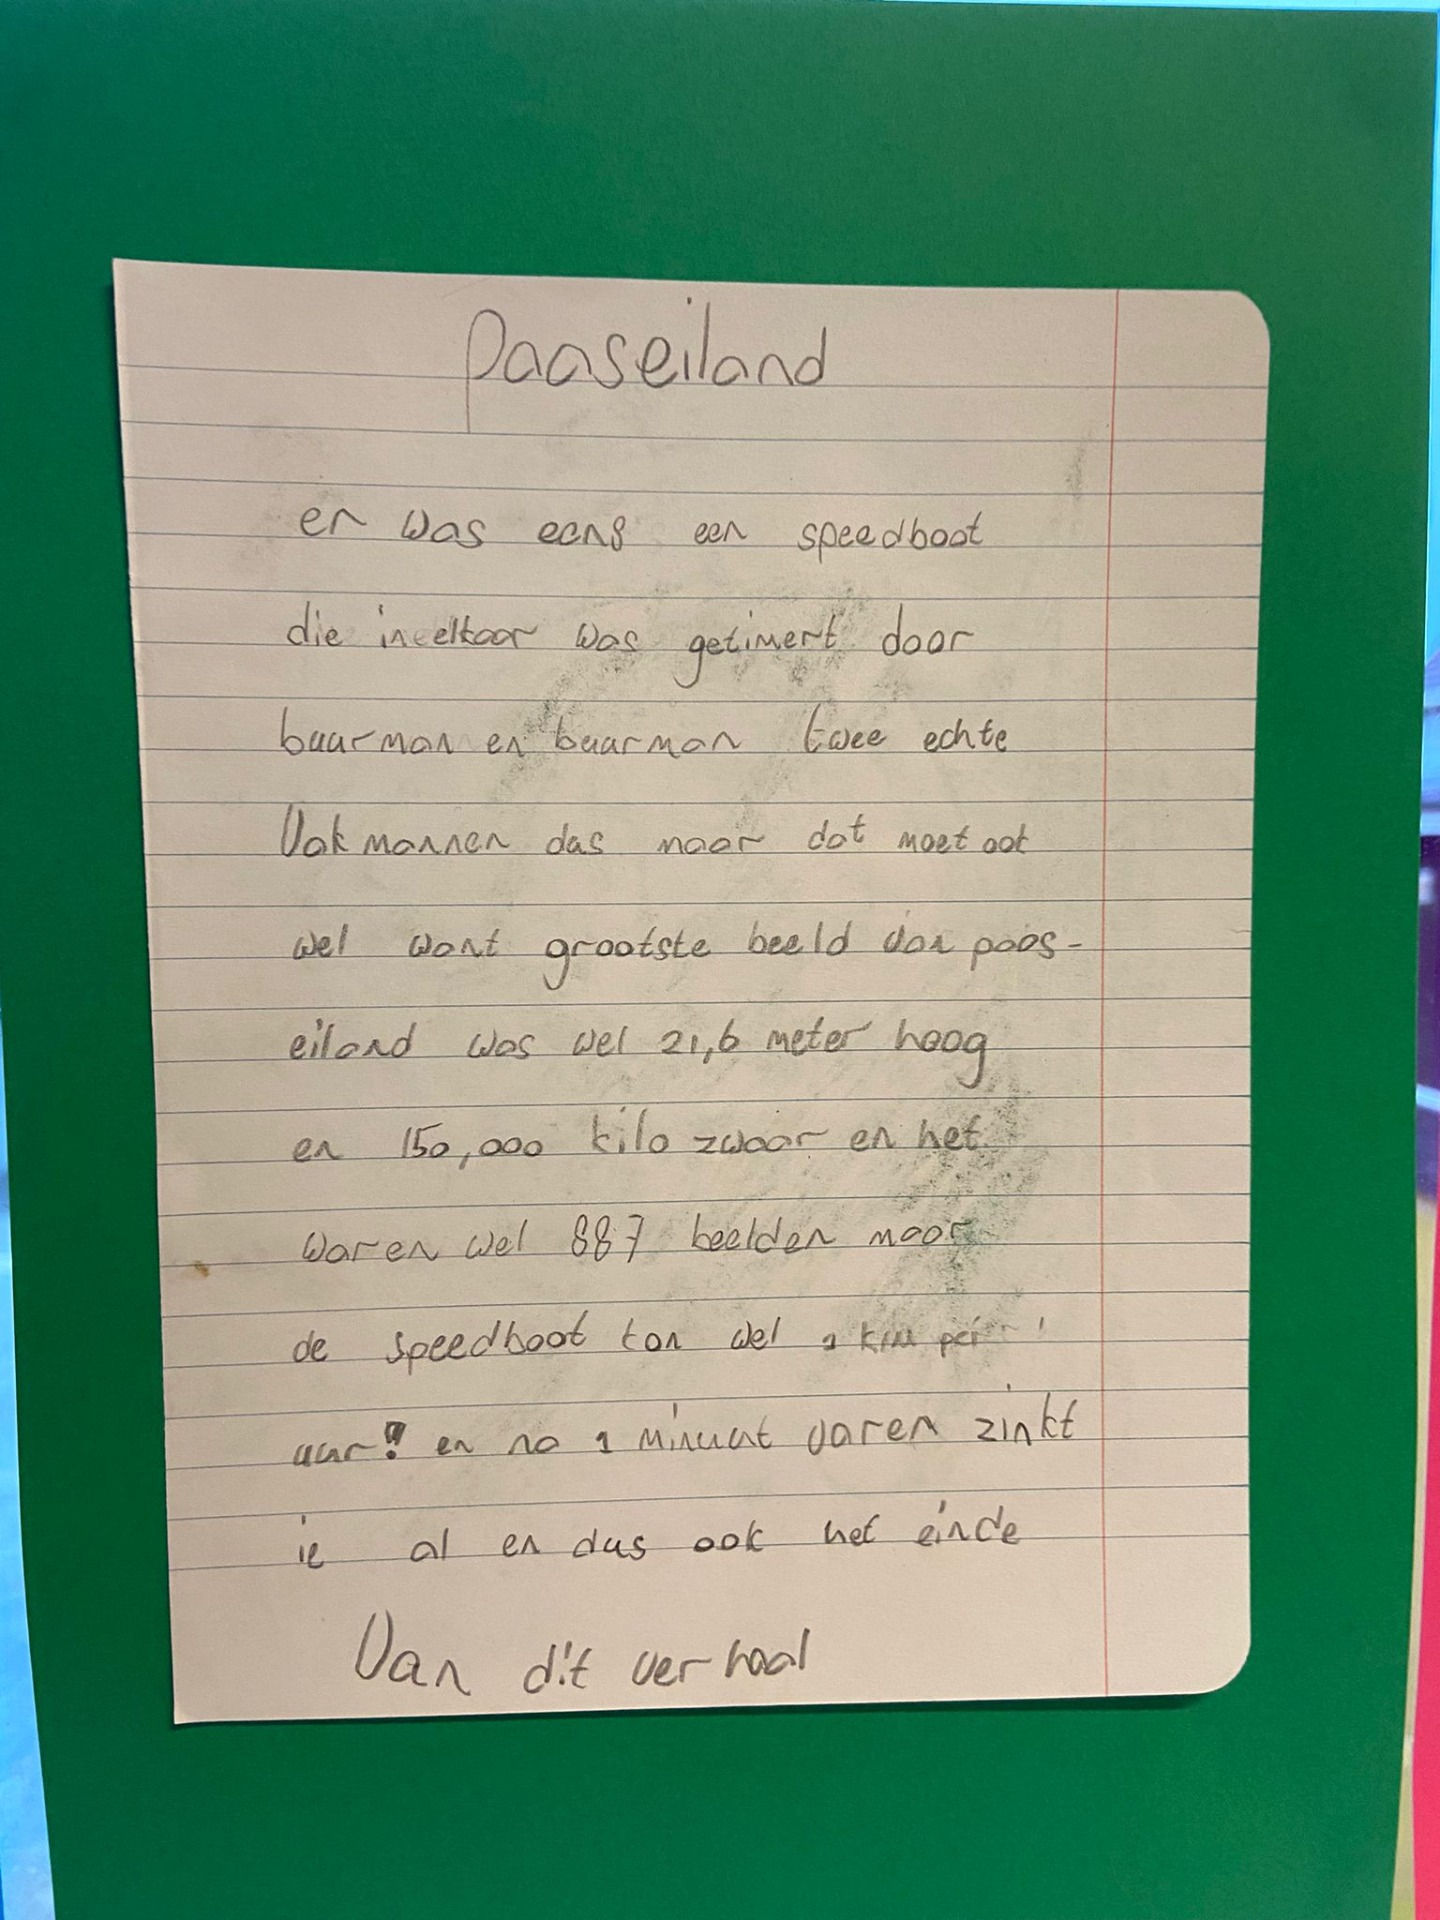 paaseiland
er was eens een speedboot
die inelkaar was getimert door
buurman en buurman twee echte
Vakmannen dus maar dat moet ook
wel want grootste beeld van paas-
eiland was wel 21,6 meter hoog
en 150,000 kilo zwaar en het
waren wel 887 beelden maar
de speedboot kon wel 1 km per
uur! en na 1 minuut varen zinkt
ie al en dus ook het einde
Van dit verhaal